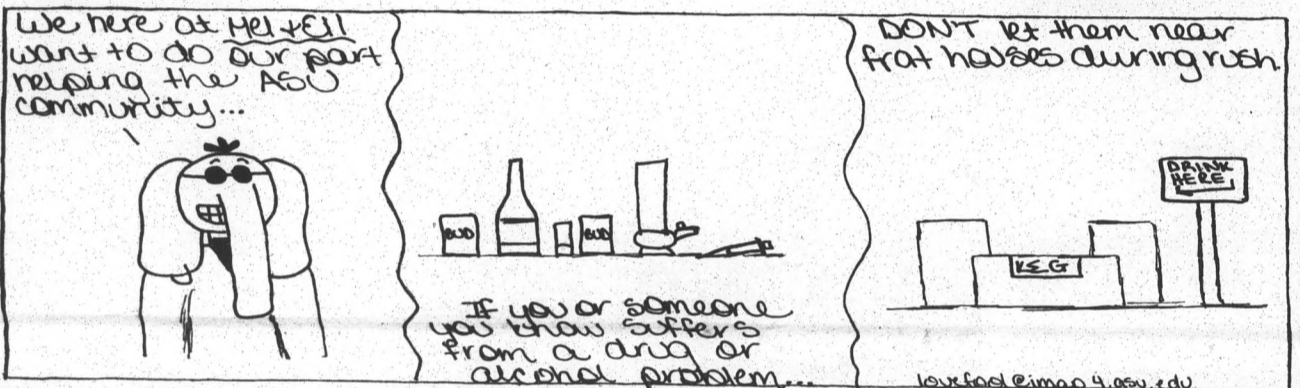 We here at Mel + Ell
want to do our part
helping the ASU
community...
BUD
BUD
If you or someone
you know suffers
from a drug or
alcohol problem...
DON'T let them near
frat houses during rush.
DRINK
HERE
KEG